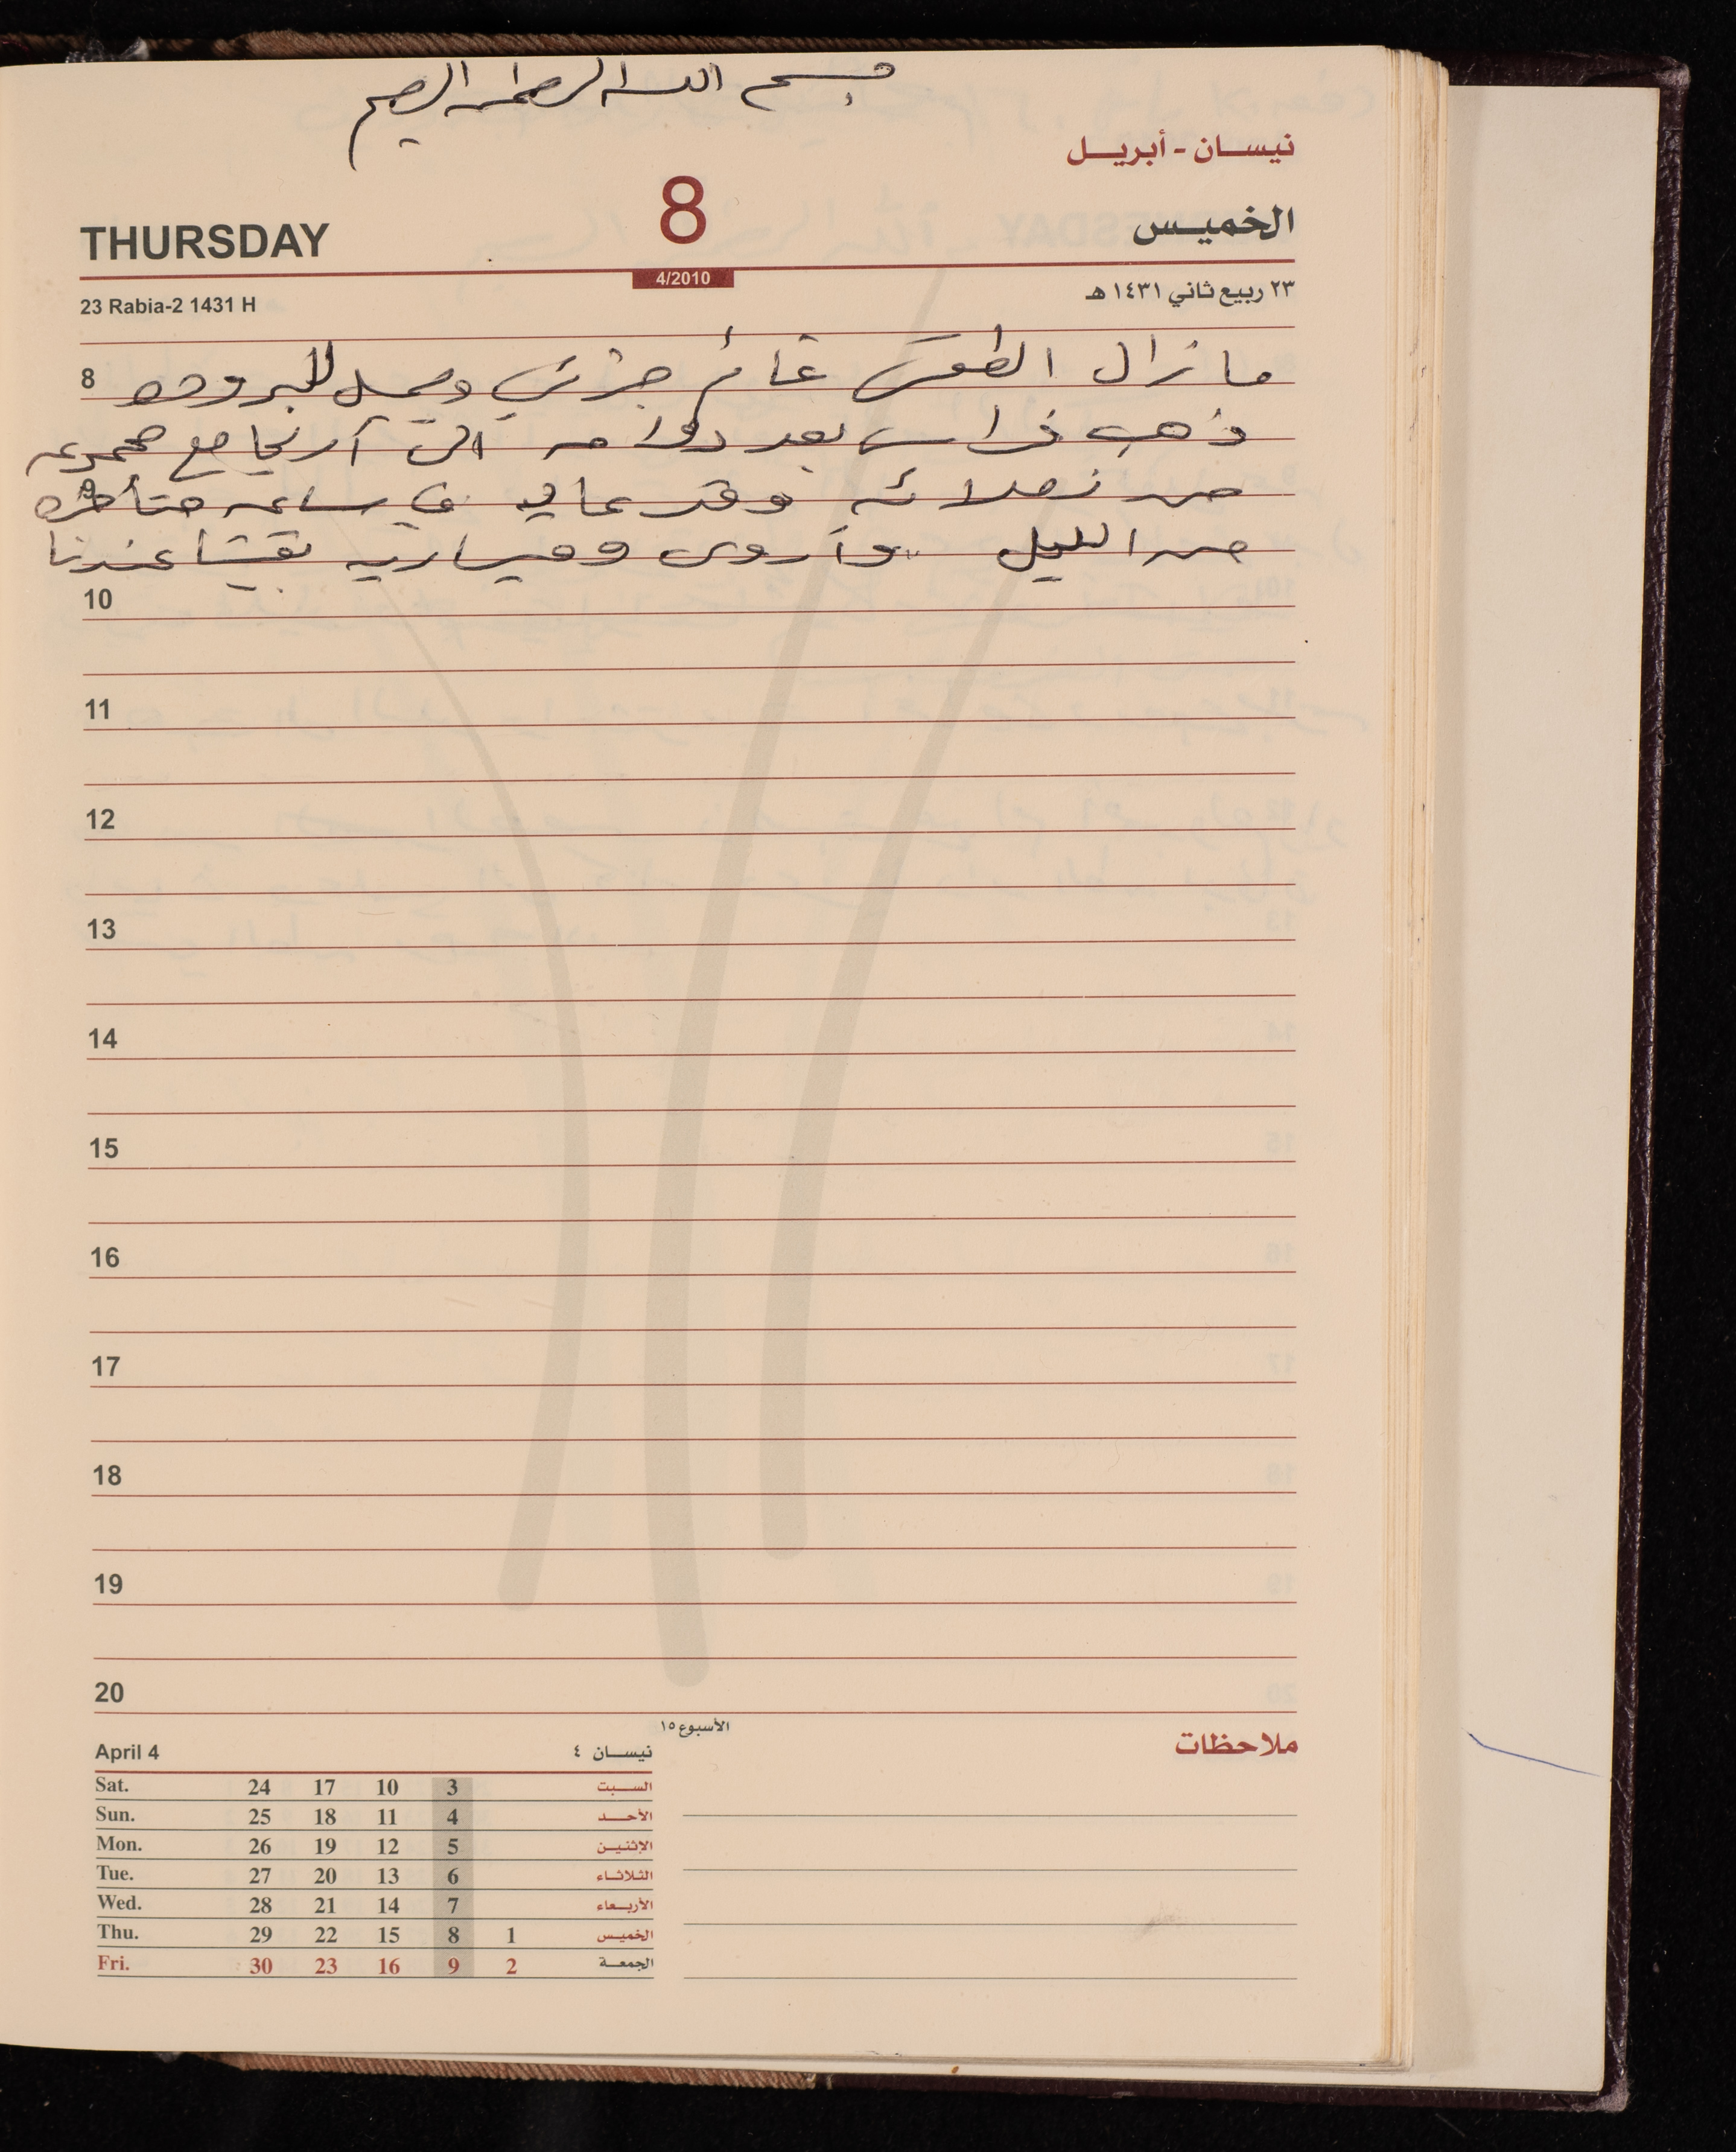 بسم الله الرحمن الرحيم
نيسان - أبريل
THURSDAY 8 الخميس
4/2010
23 Rabia-2 1431 H ٢٣ ربيع ثاني ١٤٣١ هـ
ما زال الطقس غائم جزئي ويميل للبروده
8
ذهب فراس بعد دوامه الى آريحا مع مجموعه
من زملائه وقد عاد في ساعه متأخره
9
من الليل وأروى وميساريه بقيتا عندنا
10
11
12
13
14
15
16
17
18
19
20
الأسبوع ١٥
ملاحظات
April 4 نيسان ٤
Sat. 24 17 10 3 السبت
Sun. 25 18 11 4 الأحد
Mon. 26 19 12 5 الإثنين
Tue. 27 20 13 6 الثلاثاء
Wed. 28 21 14 7 الأربعاء
Thu. 29 22 15 8 1 الخميس
Fri. 30 23 16 9 2 الجمعة